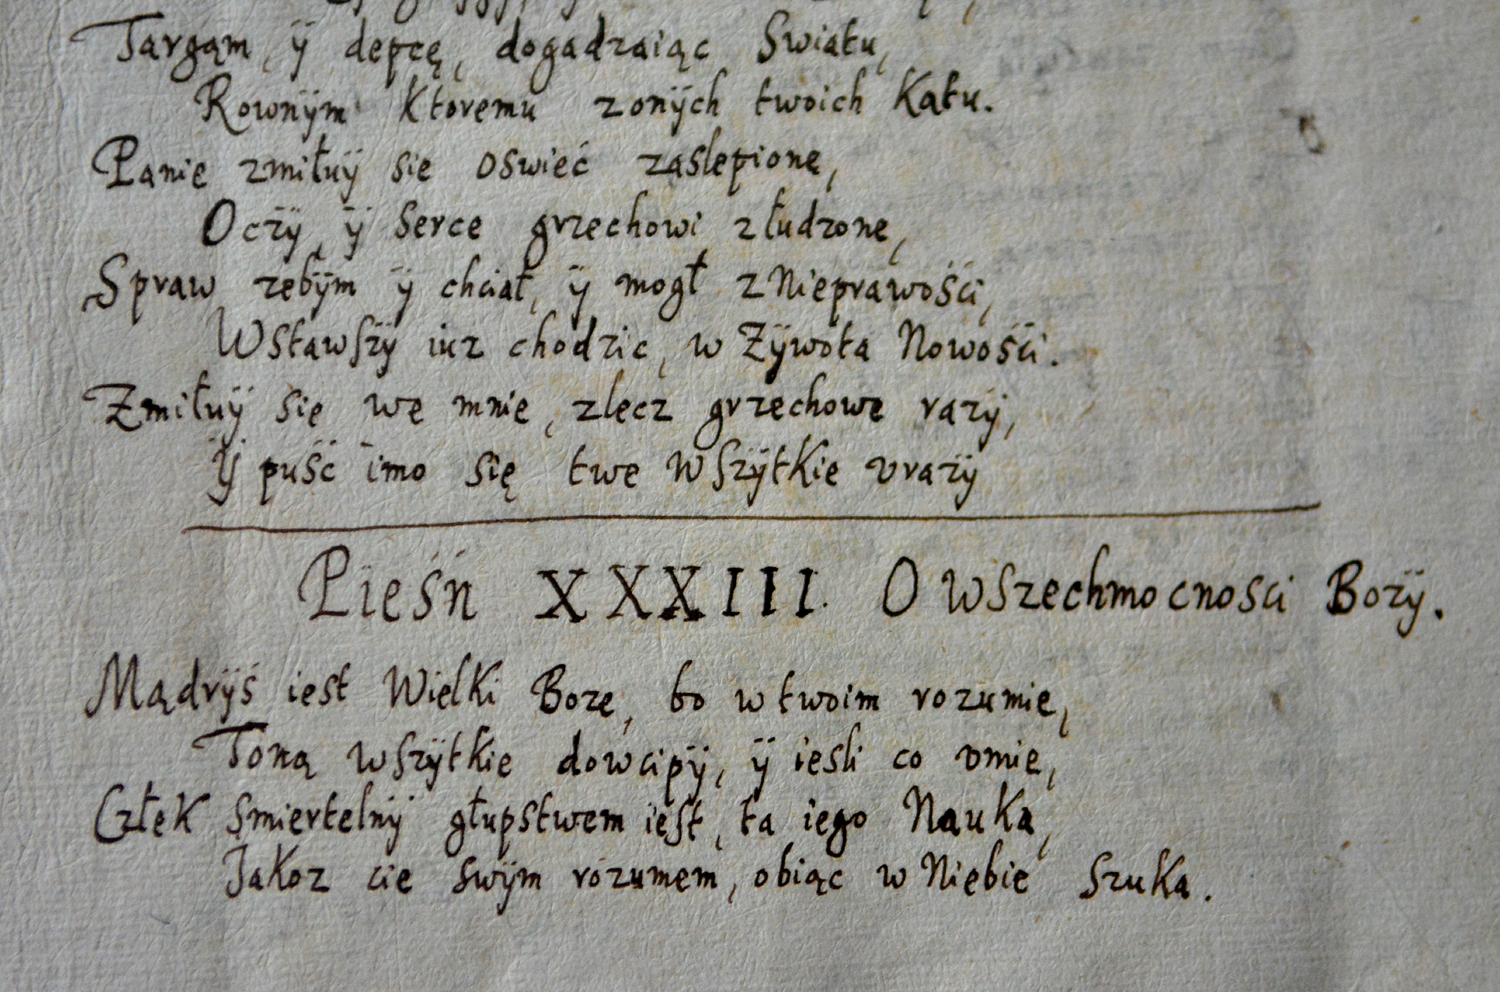 Targąm, ÿ depcę, dogadzaiąc Swiatu,
Rownÿm Ktoremu zonÿch twoich Katu.
Panie zmiłuÿ sie oswieć zaslepionę,
Oczÿ, ÿ Serce grzechowi złudzonę,
Spraw zebÿm ÿ chciał, ÿ mogł z Nieprawości,
Wstawszÿ iuz chodzic, w Zÿwota Nowości.
Zmiłuÿ się we mnie, zlecz grzechowe razÿ,
Ÿ puść imo się twe wszÿtkie vrazÿ
Pieśń XXXIII. O wszechmocnosci Bozÿ.
Mądrÿś iest Wielki Boze, bo w twoim rozumie,
Toną wszÿtkie dowcipÿ, ÿ iesli co vmie,
Człek smiertelnÿ głupstwem iest, ta iego Nauka,
Jakoz cie swÿm rozumem, obiąc w Niebie szuka.